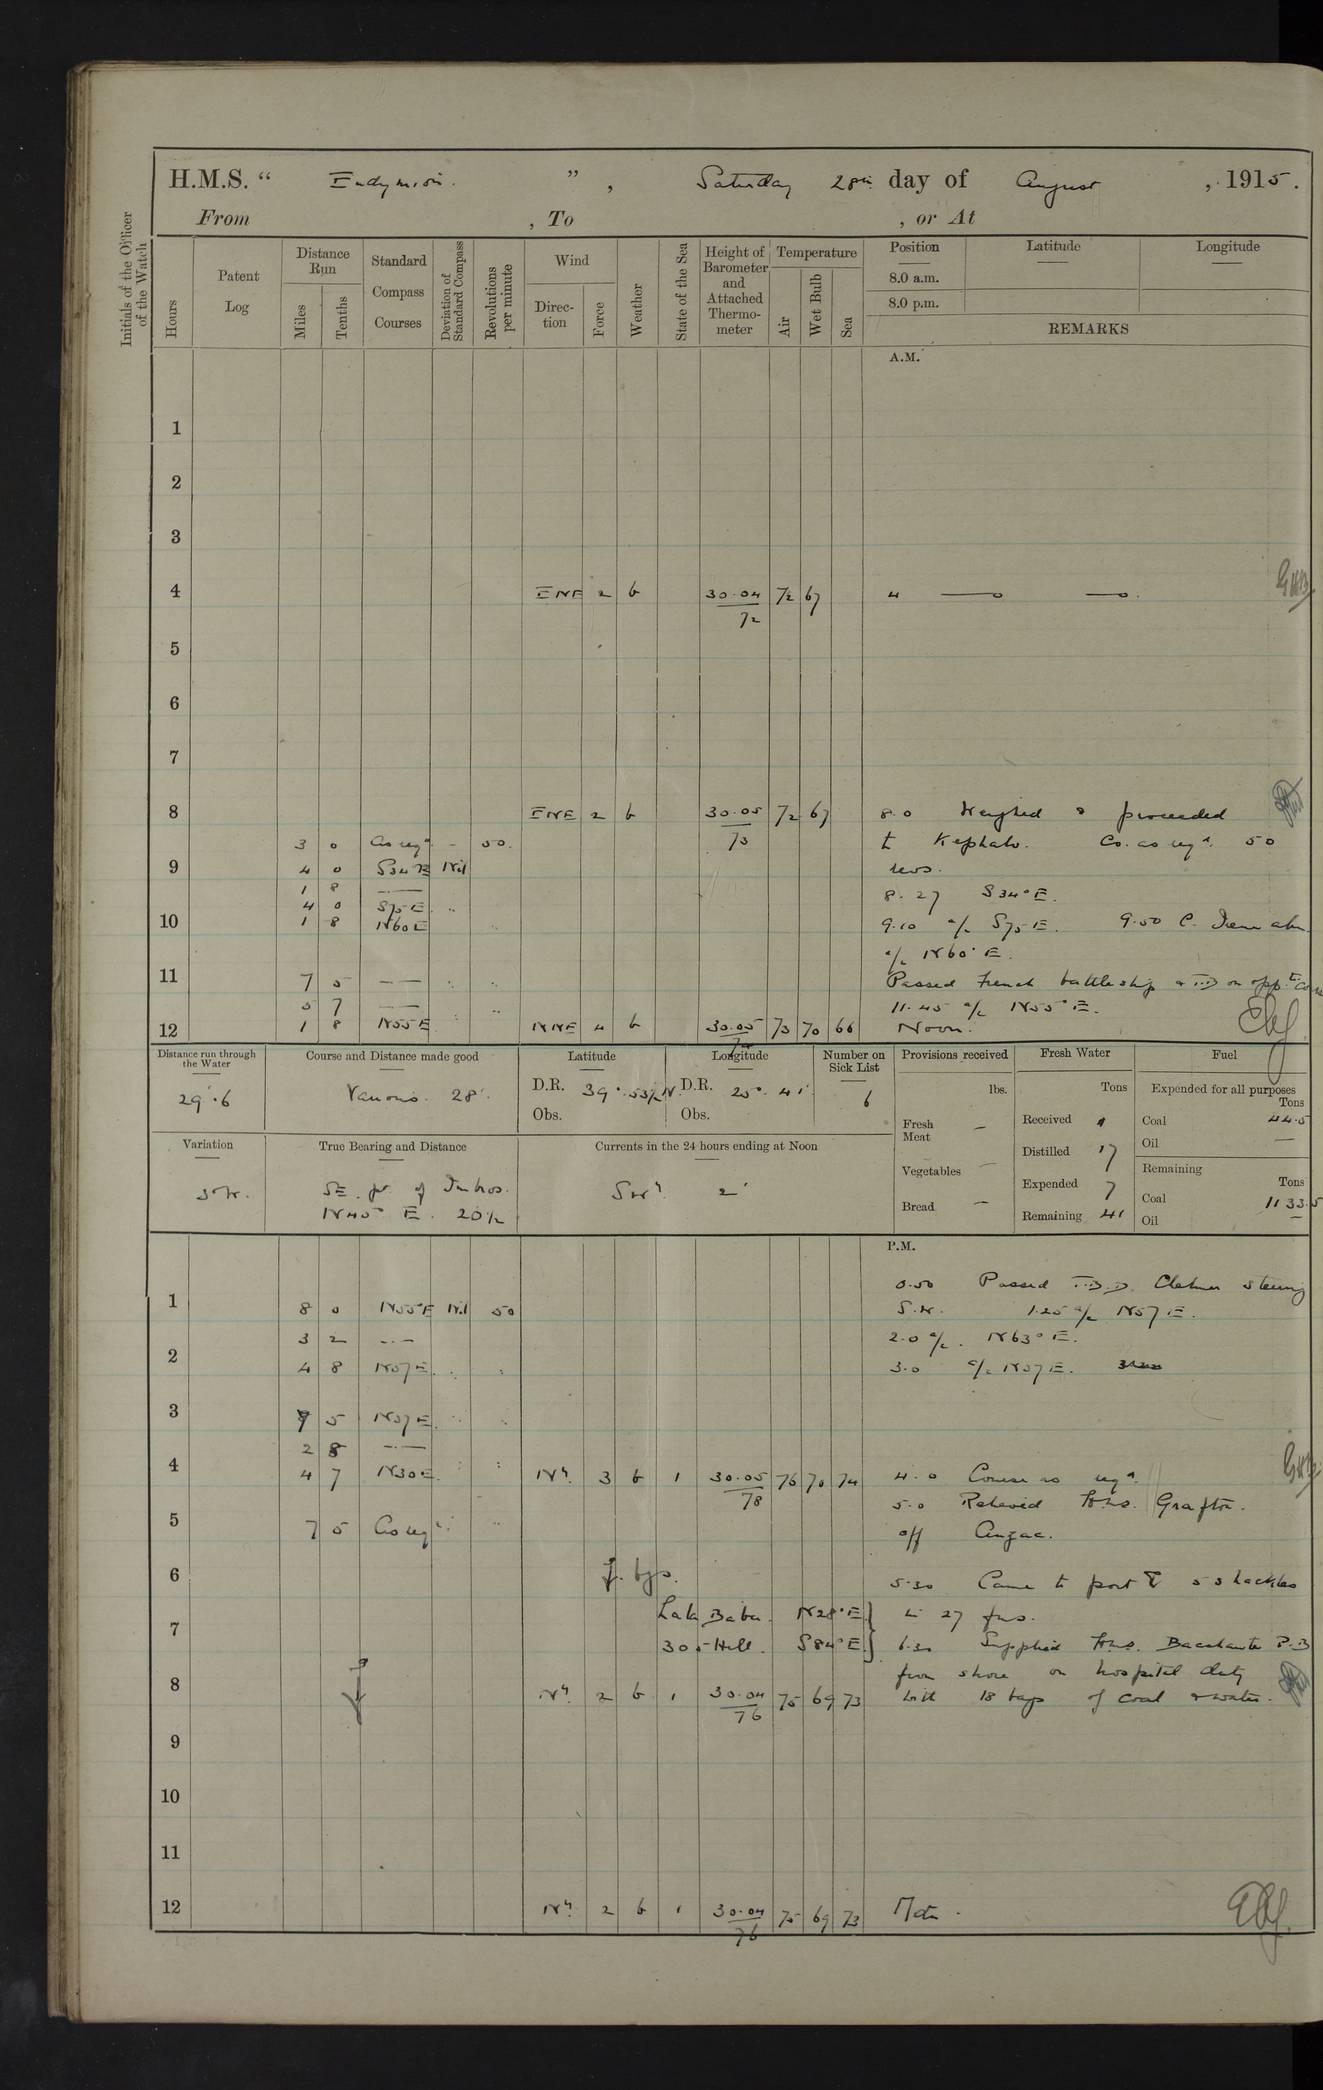 H.M.S. “ Endymion. ” , Saturday 28th day of August , 1915.
From , To , or At
Initials of the Officer of the Watch
Hours
Patent Log
Distance Run
Miles
Tenths
Standard Compass Courses
Deviation of Standard Compass
Revolutions per minute
Wind
Direction
Force
Weather
State of the Sea
Height of Barometer and Attached Thermometer
Temperature
Air
Wet Bulb
Sea
Position Latitude Longitude
8.0 a.m.
8.0 p.m.
REMARKS
A.M.
1
2
3
4 ENE 2 b 30.04 72 67 4
72
5
6
7
8 ENE 2 b 30.05 72 67 8.0 Weighed & proceeded
73
3 0 Co req. – 50. to Kephalo. Co. as reqd. 50
9 4 0 S34E Nil revs.
1 8 — 8.27 S34°E.
4 0 S75E
10 1 8 N60E 9.10 a/c S75E. 9.50 C. abm
a/c N60°E.
11 7 5 — Passed French battleship & T.B.D on oppte. course
5 7 — 11.45 a/c N55°E.
12 1 8 N55E NNE 4 b 30.05 73 70 66 Noon.
Distance run through the Water
29.6
Course and Distance made good
Various. 28'.
Latitude
D.R. 39°.53½N.
Obs.
Longitude
D.R. 25°. 41'.
Obs.
Number on Sick List
6
Provisions received
lbs.
Fresh Meat –
Vegetables –
Bread –
Fresh Water
Tons
Received
Distilled 17
Expended 7
Remaining 41
Fuel
Expended for all purposes
Tons
Coal 44.5
Oil —
Remaining
Tons
Coal 1133.5
Oil –
Variation
3°W.
True Bearing and Distance
SE. pt. of Imbros.
N45° E. 20½
Currents in the 24 hours ending at Noon
2'
P.M.
0.50 Passed T.B.D. Chelmer steering
1 8 0 N55E Nil 50 S.W. 1.25 a/c N57E.
3 2 — 2.0 a/c. N63°E.
2 4 8 N57E. 3.0 a/c N37E.
3 7 5 N37E.
2 8 —
4 4 7 N30E. 3 b 1 30.05 76 70 74 4.0 Course as reqd.
78
5.0 Relieved H.M.S. Grafton.
5 7 5 Co req. off Anzac.
6 5.30 Came to port 5 shackles
Lala Baba. N28°E in 27 fms.
7 305 Hill. S84°E. 6.30 Supplied H.M.S. Bacchante P.B
from shore on hospital duty
8 2 b 1 30.04 75 69 73 with 18 bags of coal & water.
76
9
10
11
12 2 b 1 30.04 75 69 73 Mdt.
76